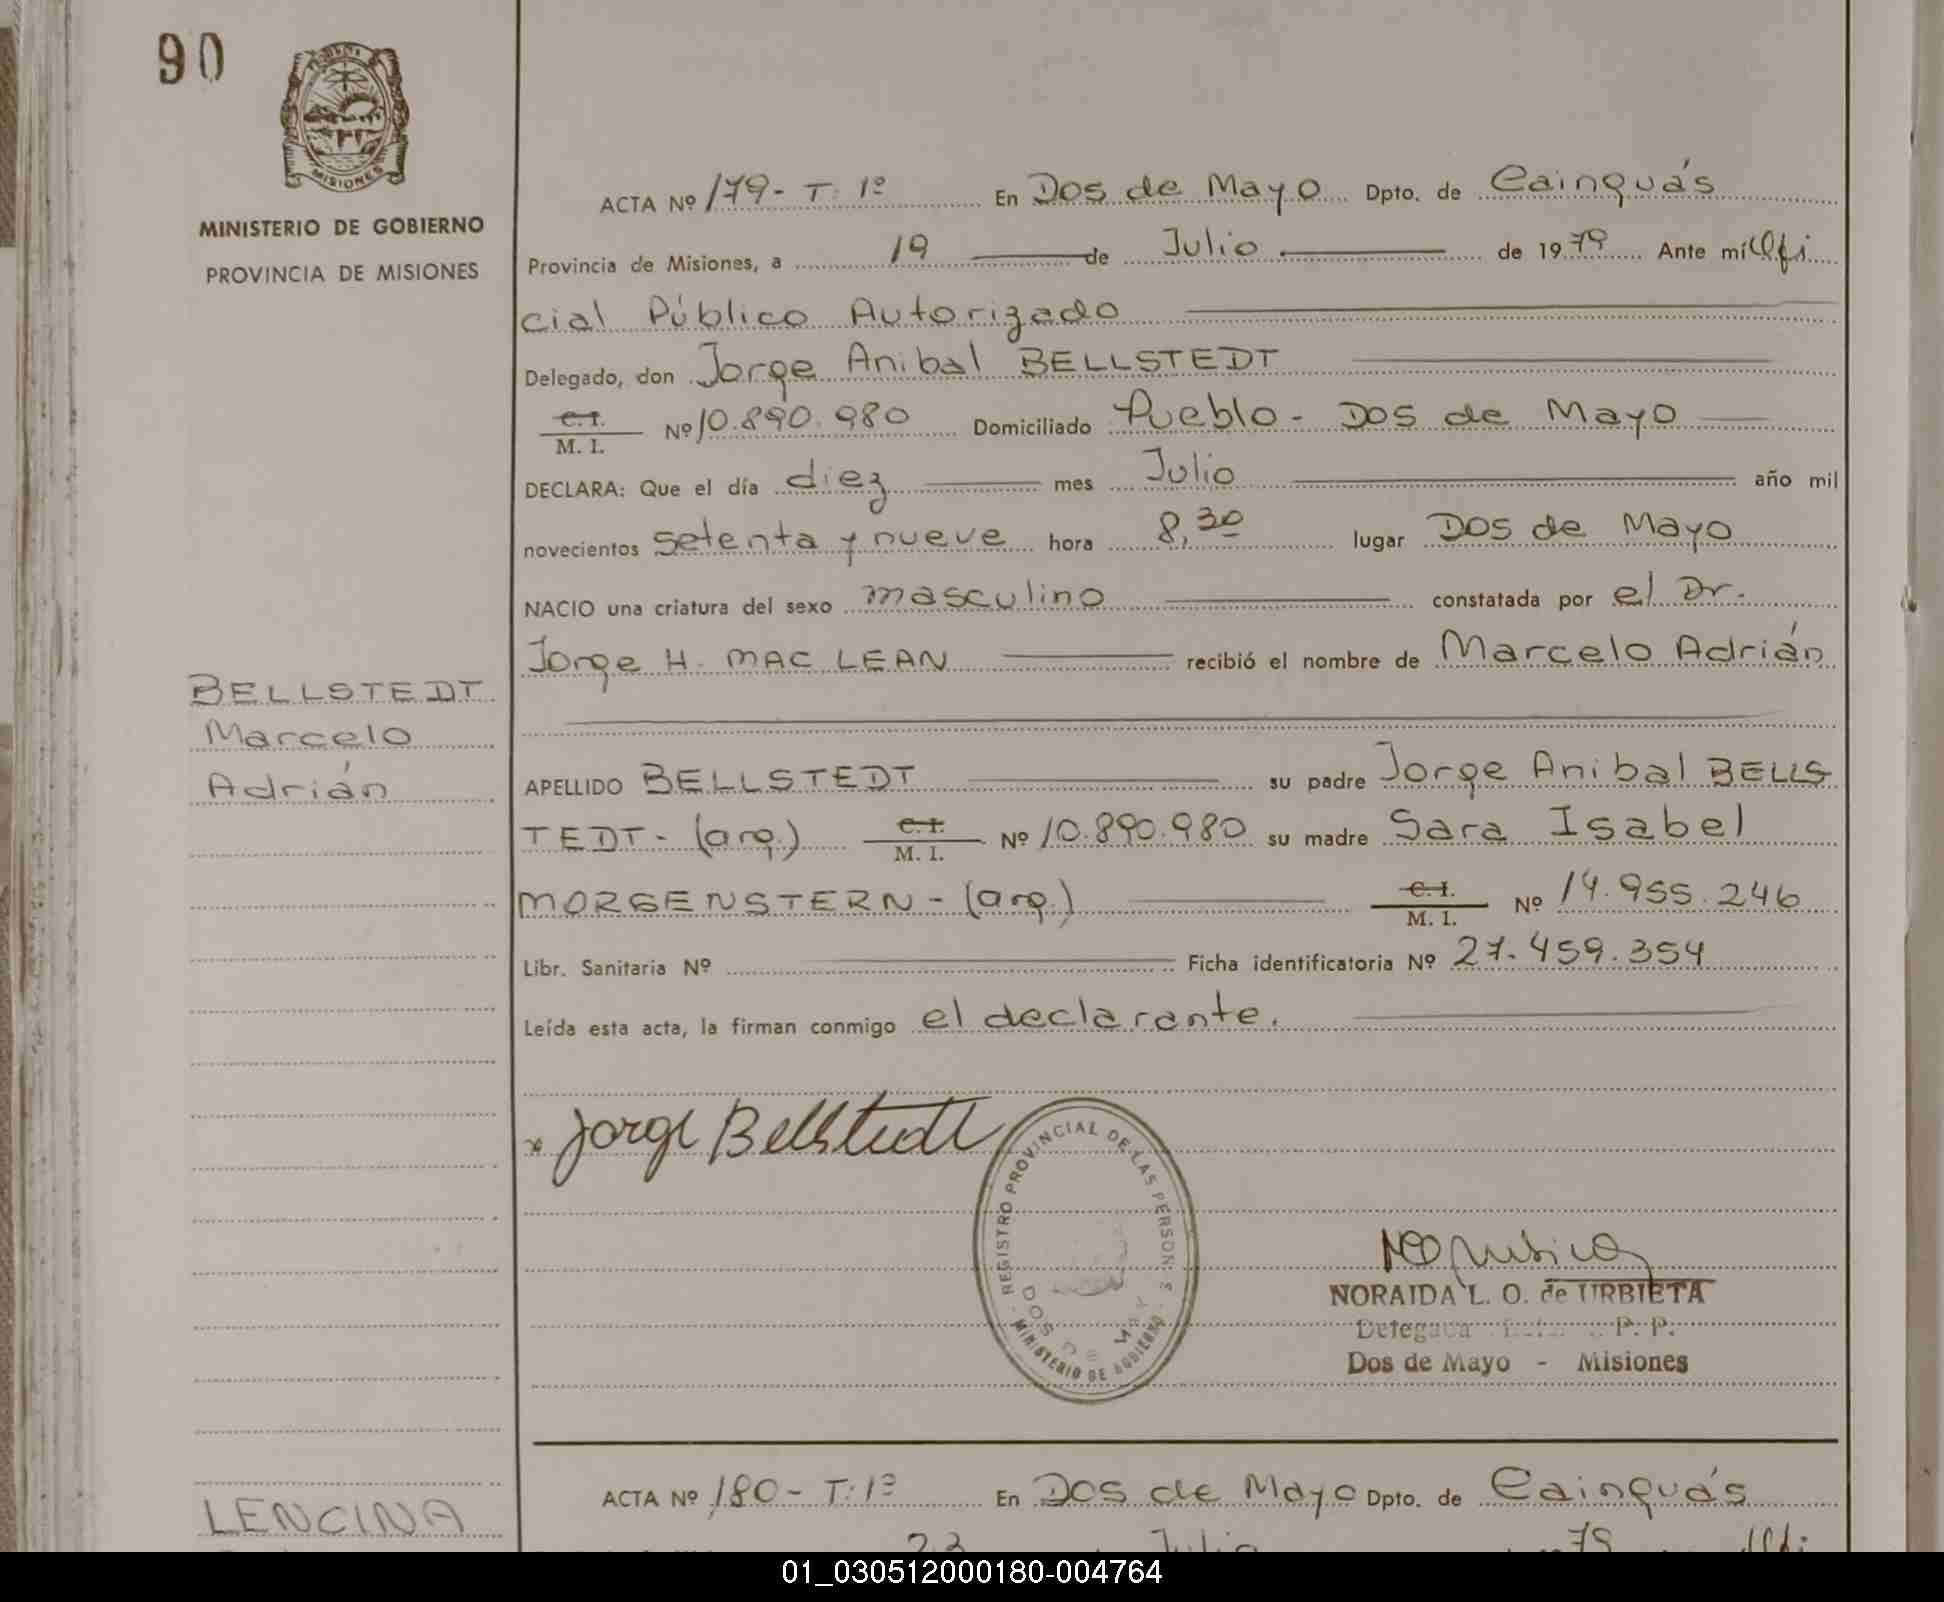 90
MISIONES
MINISTERIO DE GOBIERNO
PROVINCIA DE MISIONES
ACTA Nº 179- T: 1º En Dos de Mayo Dpto. de Cainguás
Provincia de Misiones, a 19 de Julio de 1979 Ante mí Ofi
cial Público Autorizado
Delegado, don Jorge Anibal BELLSTEDT
C. I.
M. I. Nº 10.890.980 Domiciliado Pueblo - Dos de Mayo
DECLARA: Que el día diez mes Julio año mil
novecientos setenta y nueve hora 8,30 lugar Dos de Mayo
NACIO una criatura del sexo masculino constatada por el Dr.
Jorge H. MAC LEAN recibió el nombre de Marcelo Adrián
BELLSTEDT
Marcelo
Adrián
APELLIDO BELLSTEDT su padre Jorge Anibal BELLS
TEDT - (arg.) C. I. M. I. Nº 10.890.980 su madre Sara Isabel
MORGENSTERN - (arg.) C. I. M. I. Nº 14.955.246
Libr. Sanitaria Nº Ficha identificatoria Nº 27.459.354
Leída esta acta, la firman conmigo el declarante.
Jorge Bellstedt
REGISTRO PROVINCIAL DE LAS PERSONAS
DOS DE MAYO
MINISTERIO DE GOBIERNO
NORAIDA L. O. de URBIETA
Delegada P. P.
Dos de Mayo - Misiones
ACTA Nº 180- T: 1º En Dos de Mayo Dpto. de Cainguás
LENCINA
23 Julio 79 Ofi
01_030512000180-004764